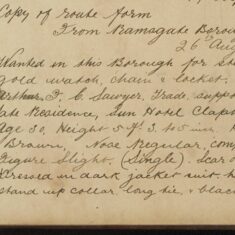 Copy of route form
From Ramsgate Borou
26 Aug
Wanted in this Borough for Ste
gold watch, chain & locket.
Arthur F. C. Sawyer, Trade, suppo
late Residence, Sun Hotel Clap
Age 30, Height 5 ft 3 to 5 ins.
Brown, Nose Regular, comp
Figure Slight. (Single). Scar o
Dressed in dark jacket suit, h
stand up collar long tie, & blac